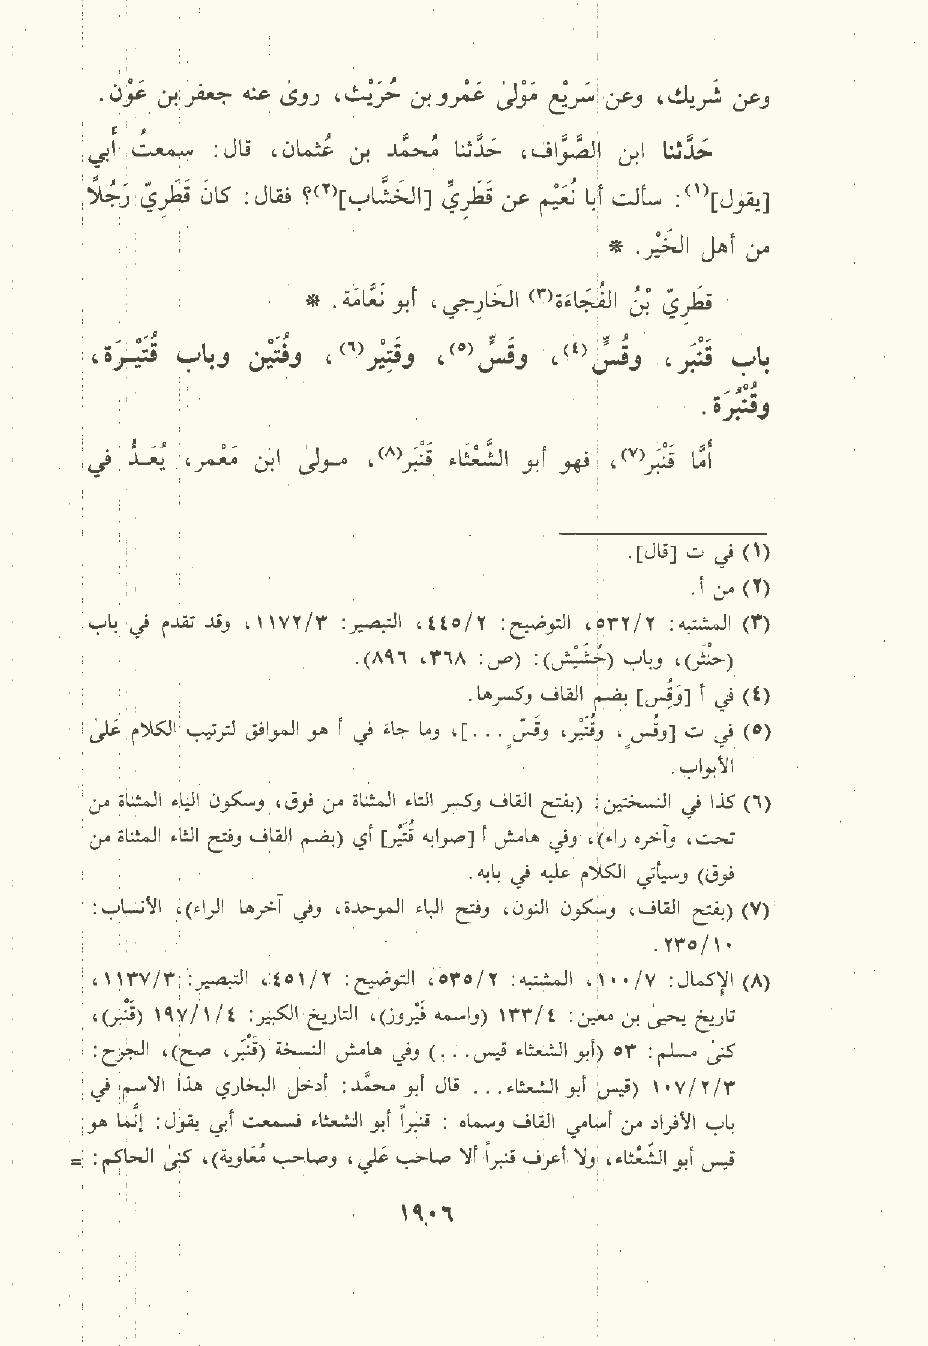 وعن شريك، وعن سَرِيْع مَوْلىٰ عَمْرو بن حُرَيْث، روىٰ عنه جعفر بن عَوْن.
حَدَّثنا ابن الصَّوَّاف، حَدَّثنا مُحمَّد بن عُثمان، قال: سمعتُ أَبي
[يقول](١): سألت أبا نُعَيْم عن قَطَرِيٍّ [الخَشَّاب](٢)؟ فقال: كانَ قَطَرِيّ رَجُلاً
من أهل الخَيْر. *
قَطَرِيّ بْنُ الفُجَاءَة(٣) الخارجي، أبو نَعَامَة. *
باب قَنْبَر، وقُسّ(٤)، وقَسّ(٥)، وقَتِيْر(٦)، وقُتَيْن وباب قُتَيْــرَة،
وقُنْبُرَة.
أَمَّا قَنْبَر(٧)، فهو أبو الشَّعْثَاء قَنْبَر(٨)، مولىٰ ابن مَعْمر، يُعَــدُّ في
(١) في ت [قال].
(٢) من أ.
(٣) المشتبه: ٥٣٢/٢، التوضيح: ٤٤٥/٢، التبصير: ١١٧٢/٣، وقد تقدم في باب
(حَنْثَر)، وباب (خُشَيْش): (ص: ٣٦٨، ٨٩٦).
(٤) في أ [وَقُِس] بضم القاف وكسرها.
(٥) في ت [وقُسٍ، وقُتَيْر، وقَسٍّ...]، وما جاء في أ هو الموافق لترتيب الكلام علىٰ
الأبواب.
(٦) كذا في النسختين: (بفتح القاف وكسر التاء المثناة من فوق، وسكون الياء المثناة من
تحت، وآخره راء)، وفي هامش أ [صوابه قُتَيْر] أي (بضم القاف وفتح الثاء المثناة من
فوق) وسيأتي الكلام عليه في بابه.
(٧) (بفتح القاف، وسكون النون، وفتح الباء الموحدة، وفي آخرها الراء)، الأنساب:
٢٣٥/١٠.
(٨) الإكمال: ١٠٠/٧، المشتبه: ٥٣٥/٢، التوضيح: ٤٥١/٢، التبصير: ١١٣٧/٣،
تاريخ يحيىٰ بن معين: ١٣٣/٤ (واسمه فَيْروز)، التاريخ الكبير: ١٩٧/١/٤ (قَنْبر)،
كنىٰ مسلم: ٥٣ (أبو الشعثاء قيس...) وفي هامش النسخة (قَنْبر، صح)، الجرح:
١٠٧/٢/٣ (قيس أبو الشعثاء... قال أبو محمَّد: أدخل البخاري هذا الاسم في
باب الأفراد من أسامي القاف وسماه: قنبراً أبو الشعثاء فسمعت أبي يقول: إنَّما هو
قيس أبو الشَّعْثاء، ولا أعرف قنبراً ألا صاحب عَلي، وصاحب مُعَاوية)، كنىٰ الحاكم: =
١٩٠٦